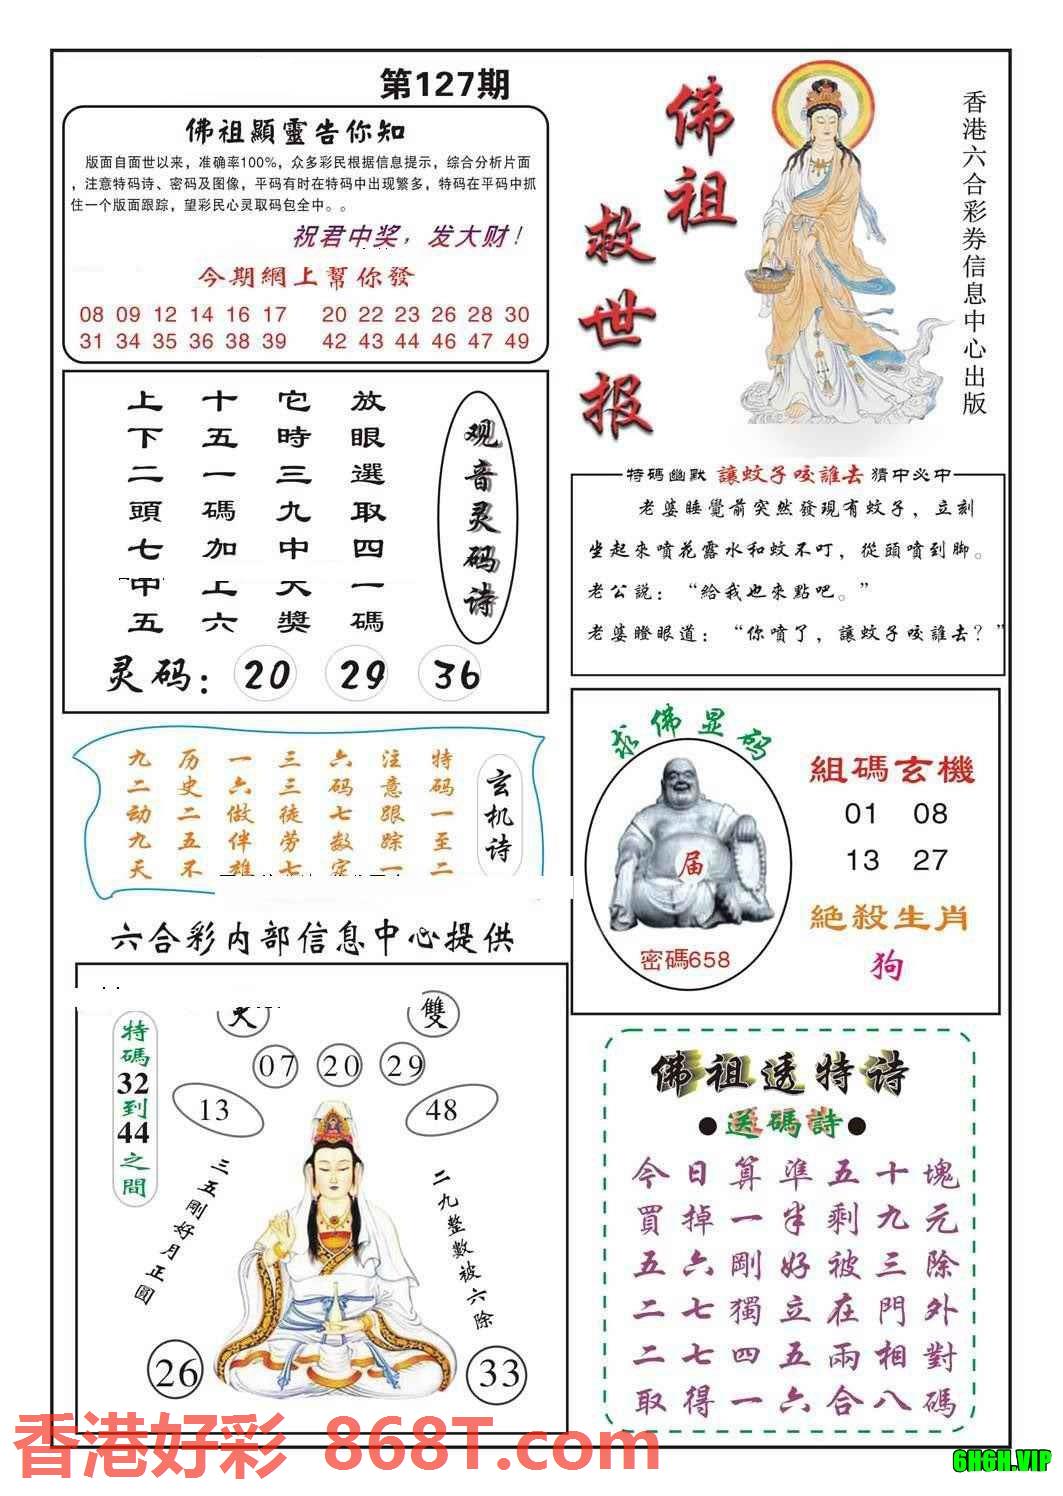 第127期
佛祖顯靈告你知
版面自面世以来，准确率100%，众多彩民根据信息提示，综合分析片面
，注意特码诗、密码及图像，平码有时在特码中出现繁多，特码在平码中抓
住一个版面跟踪，望彩民心灵取码包全中。。
祝君中奖，发大财！
今期網上幫你發
08 09 12 14 16 17 20 22 23 26 28 30
31 34 35 36 38 39 42 43 44 46 47 49
佛祖
救世报
香港六合彩券信息中心出版
观音灵码诗
放眼選取四一碼
它時三九中大獎
十五一碼加上六
上下二頭七中五
灵码：20 29 36
特碼幽默 讓蚊子咬誰去 猜中必中
老婆睡覺前突然發現有蚊子，立刻
坐起來噴花露水和蚊不叮，從頭噴到脚。
老公説：“給我也來點吧。”
老婆瞪眼道：“你噴了，讓蚊子咬誰去？”
玄机诗
特码一至二
注意跟踪一
六码七数定
三三徒劳七
一六做伴雄
历史二五不
九二动九天
求佛显码
届
密碼658
組碼玄機
01 08
13 27
絕殺生肖
狗
六合彩内部信息中心提供
雙
07 20 29
13 48
特碼32到44之間
三五剛好月正圓
二九整數被六除
26 33
佛祖透特诗
●送碼詩●
今日算準五十塊
買掉一半剩九元
五六剛好被三除
二七獨立在門外
二七四五兩相對
取得一六合八碼
香港好彩 868T.com
6H6H.VIP